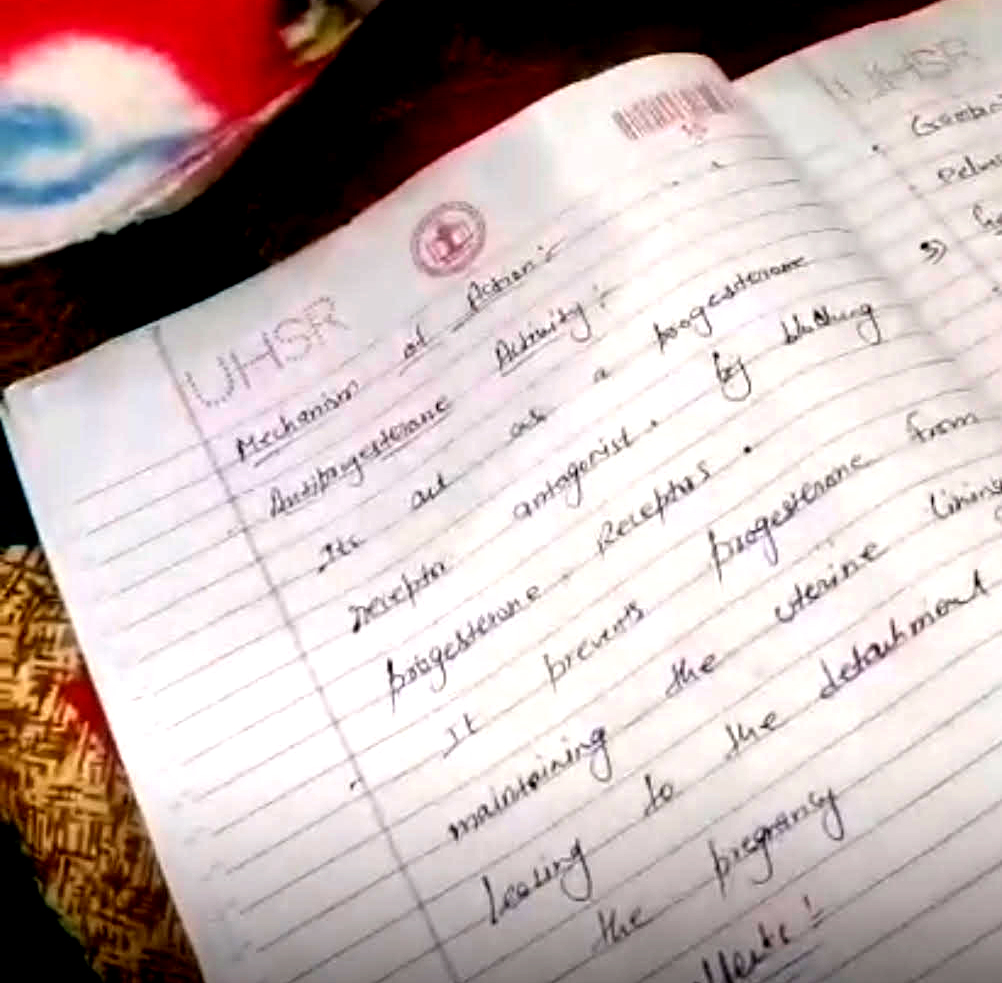 UHSR
Mechanism of Action :-
Antiprogesterone Activity :-
Its act as a progesterone
receptor antagonist. by blocking
progesterone Receptors.
It prevents progesterone from
maintaining the uterine lining
leaing to the detachment
the pregnancy
UHSR
3)